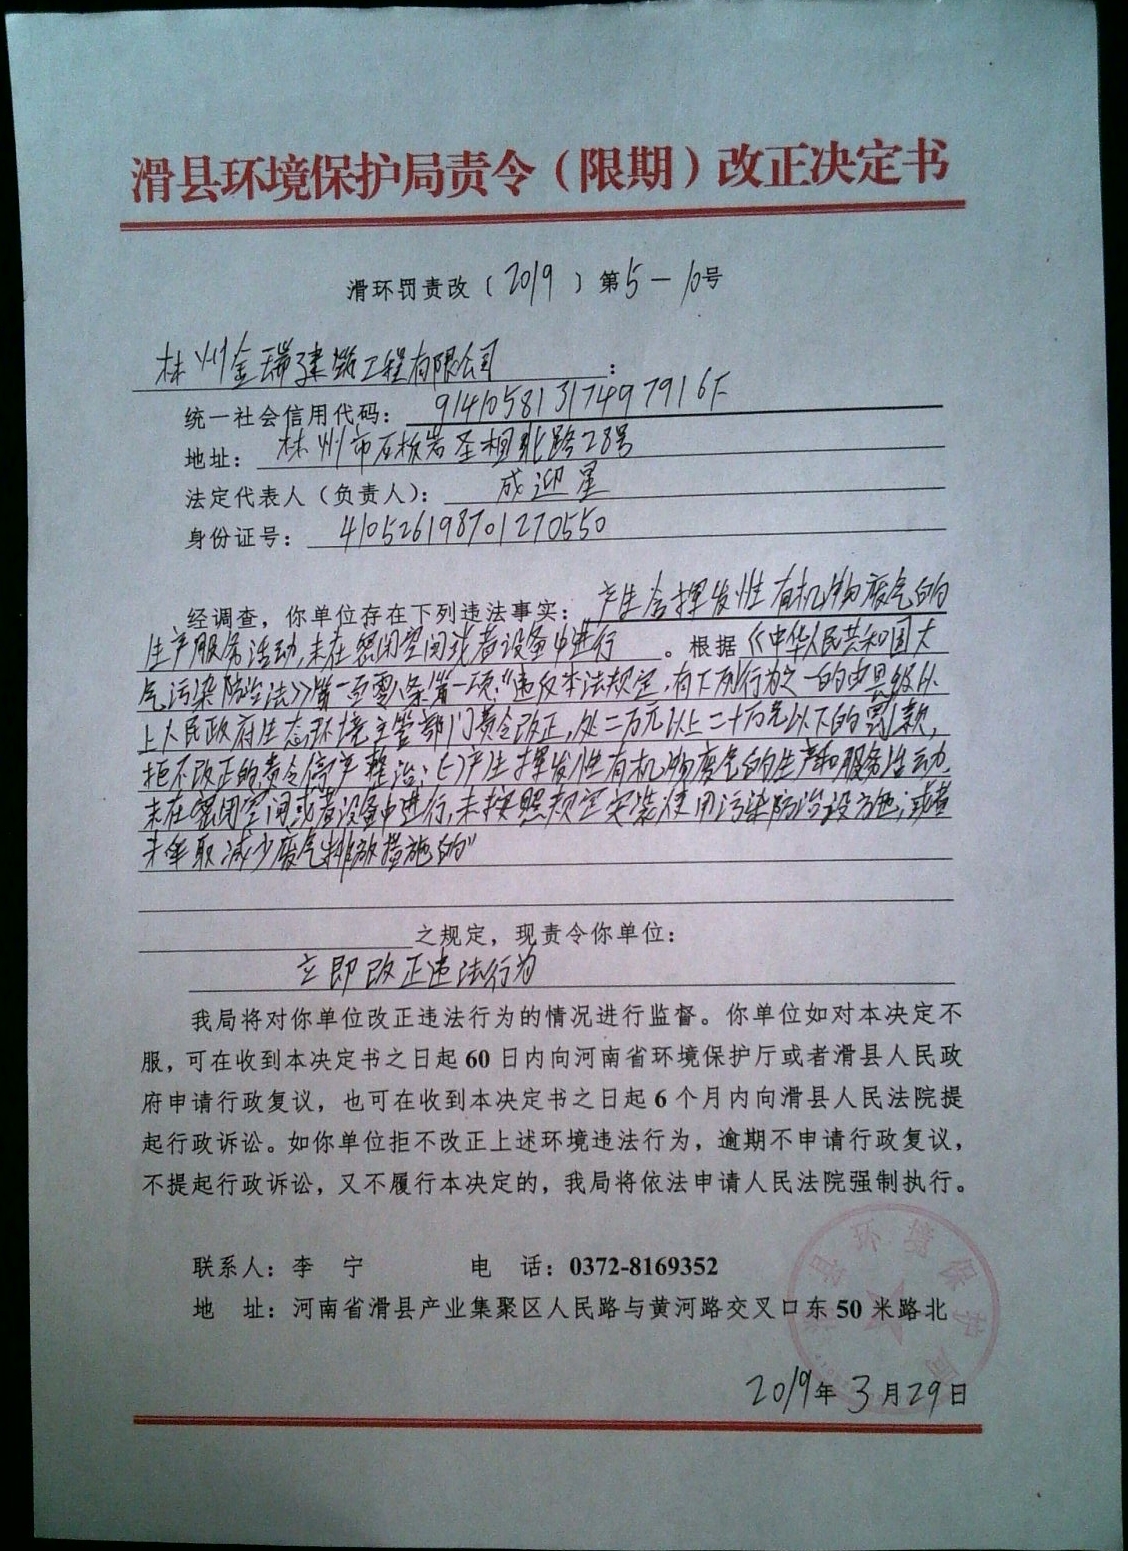 滑县环境保护局责令（限期）改正决定书
滑环罚责改（2019）第5-10号
林州金瑞建筑工程有限公司：
统一社会信用代码：91410581317497916F
地址：林州市石板岩圣相北路28号
法定代表人（负责人）：成迎星
身份证号：410526198701270550
经调查，你单位存在下列违法事实：产生含挥发性有机物废气的
生产服务活动，未在密闭空间或者设备中进行。根据《中华人民共和国大
气污染防治法》第一百零八条第一项："违反本法规定，有下列行为之一的由县级以
上人民政府生态环境主管部门责令改正，处二万元以上二十万元以下的罚款，
拒不改正的，责令停产整治；(一)产生挥发性有机物废气的生产和服务活动，
未在密闭空间或者设备中进行，未按照规定安装、使用污染防治设施；或者
未采取减少废气排放措施的"
之规定，现责令你单位：
立即改正违法行为
我局将对你单位改正违法行为的情况进行监督。你单位如对本决定不
服，可在收到本决定书之日起60日内向河南省环境保护厅或者滑县人民政
府申请行政复议，也可在收到本决定书之日起6个月内向滑县人民法院提
起行政诉讼。如你单位拒不改正上述环境违法行为，逾期不申请行政复议，
不提起行政诉讼，又不履行本决定的，我局将依法申请人民法院强制执行。
联系人：李 宁 电 话：0372-8169352
地 址：河南省滑县产业集聚区人民路与黄河路交叉口东50米路北
滑县环境保护局
2019年3月29日